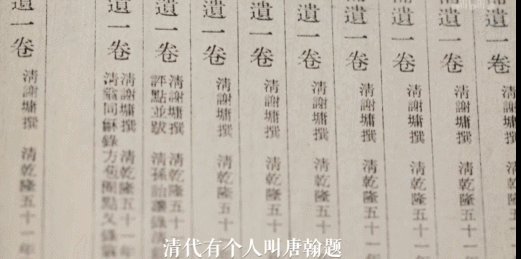 遺一卷 清謝墉撰 清乾隆五十一
遺一卷 清謝墉撰 清乾隆五十一
遺一卷 清謝墉撰 清乾隆五十一
遺一卷 清謝墉撰 清乾隆五十一
遺一卷 清謝墉撰 清乾隆五十
遺一卷 清謝墉撰 清乾隆五十
遺一卷 清謝墉撰 清乾隆五十
遺一卷 清謝墉撰 清乾隆五十
評點並跋 清孫詒讓錄
遺一卷 清謝墉撰 清乾隆五十一年
清翁同龢錄方苞圈點又錄
遺一卷 清謝墉撰 清乾隆五十一年
清代有个人叫唐翰题